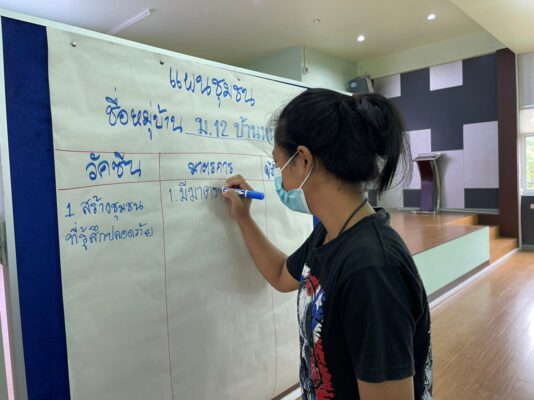 แผนชุมชน
ชื่อหมู่บ้าน ม.12 บ้าน
วัคซีน มาตรการ
1. มีมาตร
1 สร้างชุมชน
ที่รู้สึกปลอดภัย